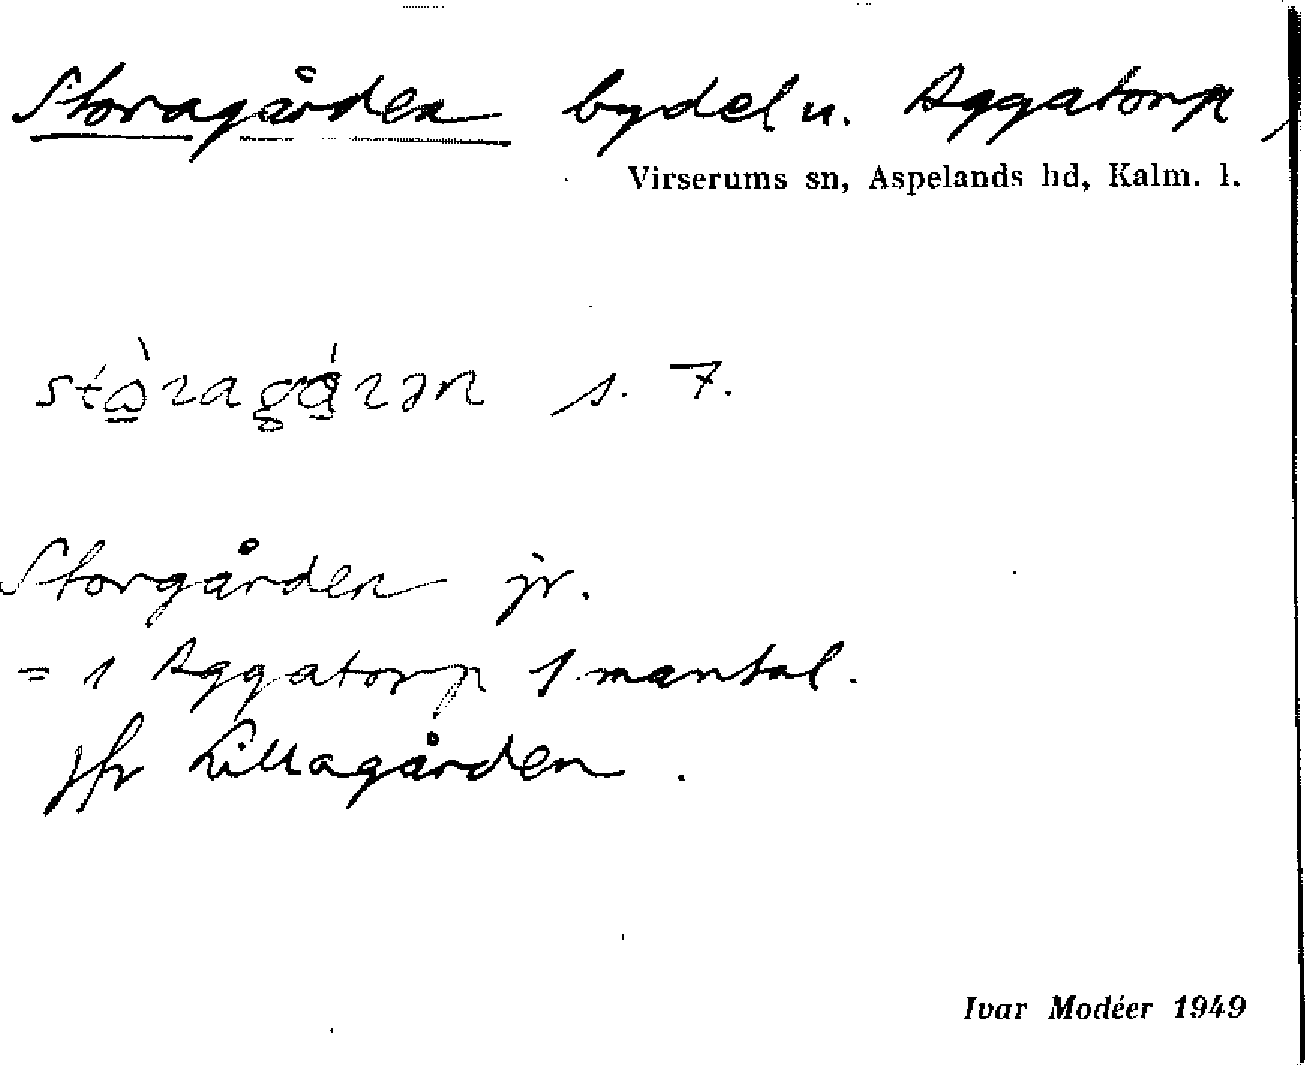 Storagården bydel u. Aggatorp,
Virserums sn, Aspelands hd, Kalm. l.
s. 7.
Storgården jr.
= 1 Aggatorp 1 mantal.
jfr Lillagården.
Ivar Modéer 1949